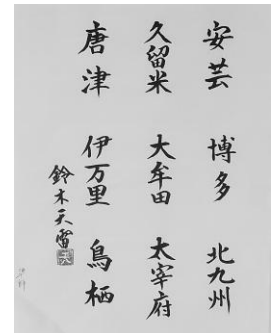 安芸 博多 北九州
久留米 大牟田 太宰府
唐津 伊万里 鳥栖
鈴木天